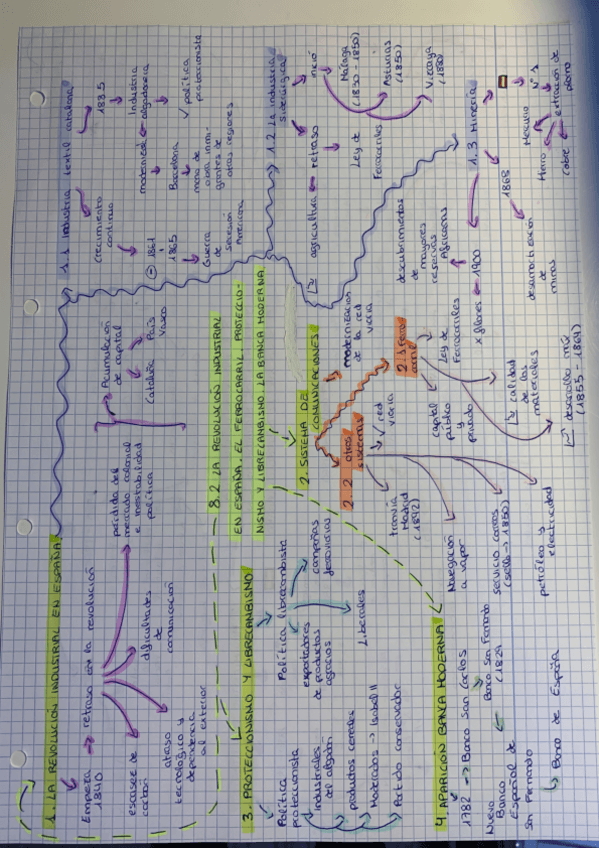 1. LA REVOLUCIÓN INDUSTRIAL EN ESPAÑA
Empieza → retraso en la revolución
1840
escasez de
carbón
Atraso
tecnológico y
dependencia
al exterior
dificultades
de
comunicación
pérdida del
mercado colonial
e inestabilidad
política
Acumulación
de capital
Cataluña
País
Vasco
1.1 Industria textil catalana
Crecimiento
continuo
1835
Industria
algodonera
modernizó
Barcelona
✓ política
proteccionista
mano de
obra inmi-
grantes de
otras regiones
1861
1865
Guerra
de
Secesión
Americana
8.2 LA REVOLUCIÓN INDUSTRIAL
EN ESPAÑA. EL FERROCARRIL. PROTECCIO-
NISMO Y LIBRECAMBISMO. LA BANCA MODERNA
1.2 La industria
siderúrgica
agricultura ← retraso
inició
Ley de
Ferrocarriles
Málaga
(1830-1850)
Asturias
(1850)
Vizcaya
(1880)
1.3 Minería
1868
desamortización
de
minas
x filones ← 1900
descubrimientos
de mayores
reservas
Africanas
Mercurio
nº 1
Hierro
cobre
extracción de
plomo
2. SISTEMA DE
COMUNICACIONES
modernización
de la red
viaria
2.1 Ferro
carril
Ley de
Ferrocarriles
capital
público
y
privado
calidad
de los
materiales
desarrollo
(1855-1864)
2.2 otros
sistemas
✓ red
viaria
tranvía
Madrid
(1842)
Navegación
a vapor
servicio correos
(sello → 1850)
petróleo y
electricidad
3. PROTECCIONISMO Y LIBRECAMBISMO
Política
proteccionista
Industriales
del algodón
productores cereales
Moderados → Isabel II
Partido conservador
Política librecambista
exportadores
de productos
agrarios
compañías
ferroviarias
Liberales
4. APARICIÓN BANCA MODERNA
1782 → Banco San Carlos
Banco San Fernando
(1829
Nuevo
Banco
Español de
San Fernando
↳ Banco de España